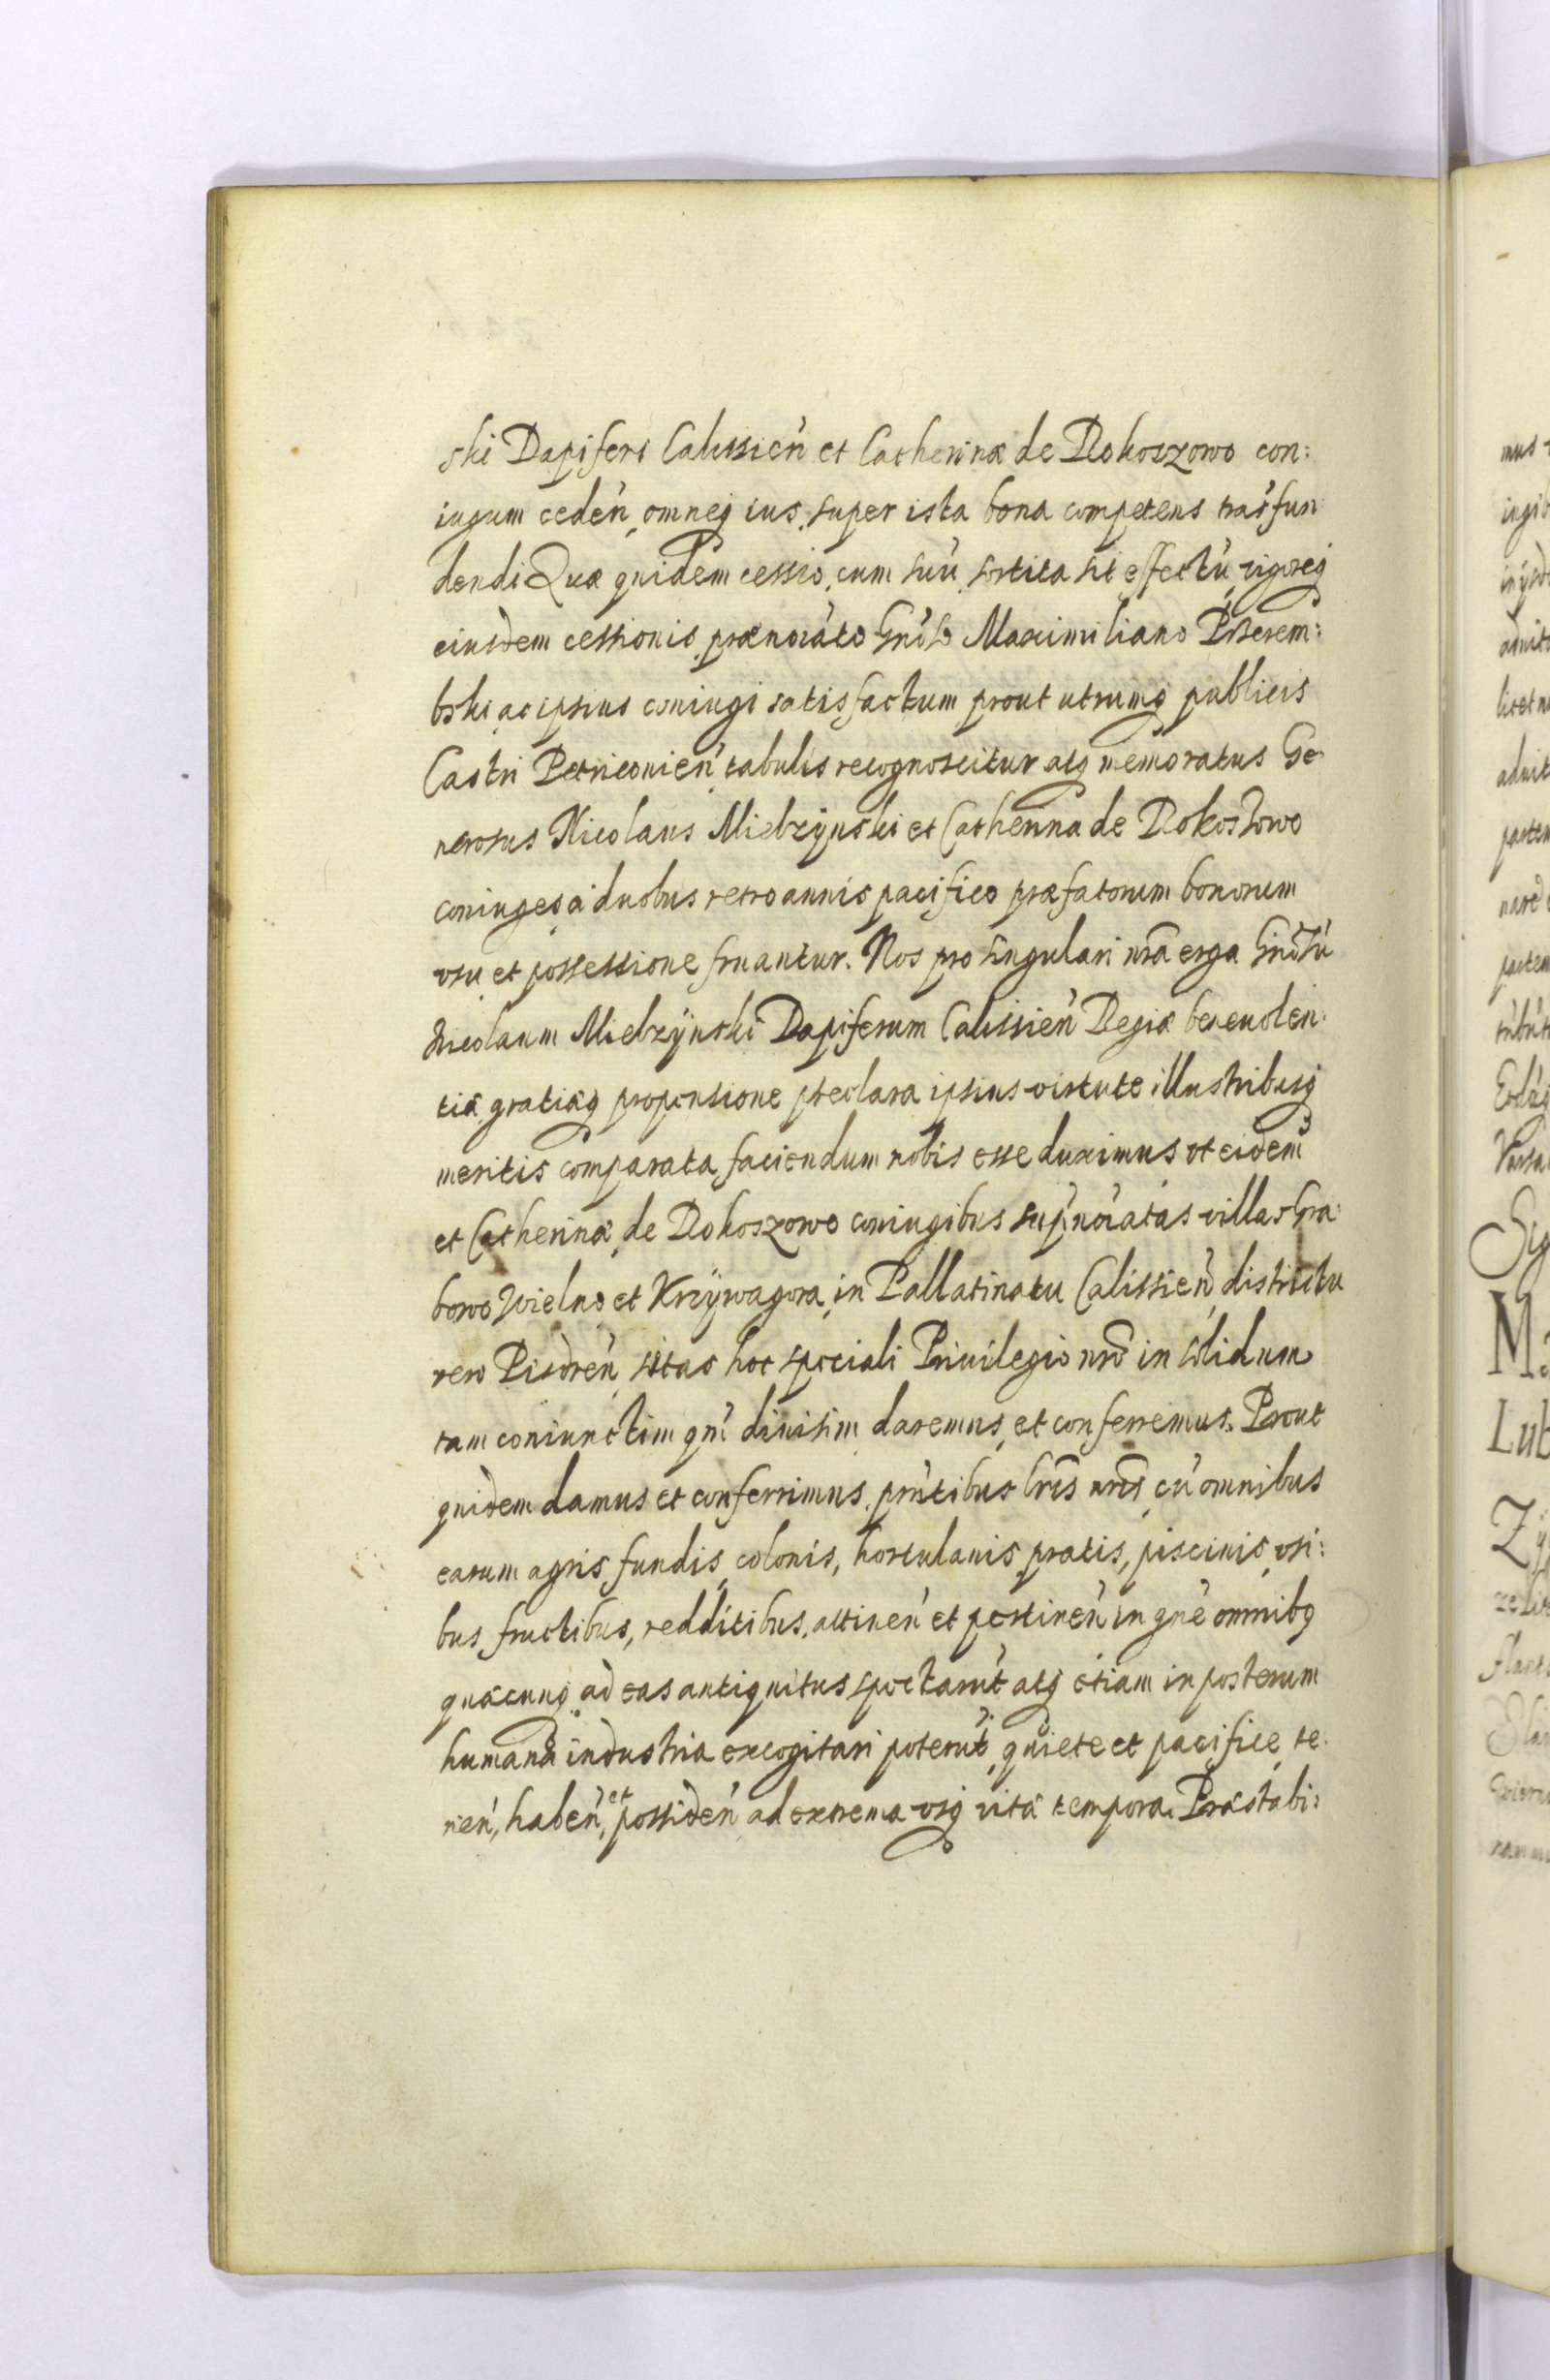 ski Dapiferi Calissień et Catherinæ de Rokoszowo con:
iugum cedeń, omneq ius, super ista bona competens trāsfun
dendi Quæ quidem cessio, cum suū, sortita sit effectū, vigoreq
eiusdem cessionis, prænoĩato Gnōso Maximiliano Przerem:
bski, ac ipsius coniugi satisfactum prout utrumq publicis
Castri Petriconień, tabulis recognoscitur atq memoratus Ge
nerosus Nicolaus Mielzÿnski et Catherina de Rokoszowo
coniuges, à duobus retro annis pacifico præfatorum bonorum
vsu, et possessione fruantur. Nos pro singulari nrā erga Gnōsū
Nicolaum Mielzÿnski Dapiferum Calissień Regiæ beneuolen:
tiæ, gratiæq propensione præclara ipsius virtute illustribusq
meritis comparata, faciendum nobis esse duximus vt eidem
et Catherinæ, de Rokoszowo coniugibus supnoĩatas villas Gra:
bowo Wielno, et Krzÿwagora, in Pallatinatu Calissień, districtu
vero Pisdreń, sitas hoc speciali Priuilegio nrō in solidum
tam coniunctim qm̃ diuisim daremus, et conferremus. Prout
quidem damus et conferrimus, pñtibus lrīs nrīs, cū omnibus
earum agris fundis, colonis, hortulanis, pratis, piscinis, vsi:
bus, fructibus, redditibus, attineń et pertineń in gñe omnibq
quæcunq, ad eas antiquitus spectarūt atq etiam in posterum
humana industria excogitari poterūt, quiete et pacifice, te:
neń, habeń, et possideń ad extrema vsq vitæ tempora. Præstabi:
mus
Sig
M
Lub